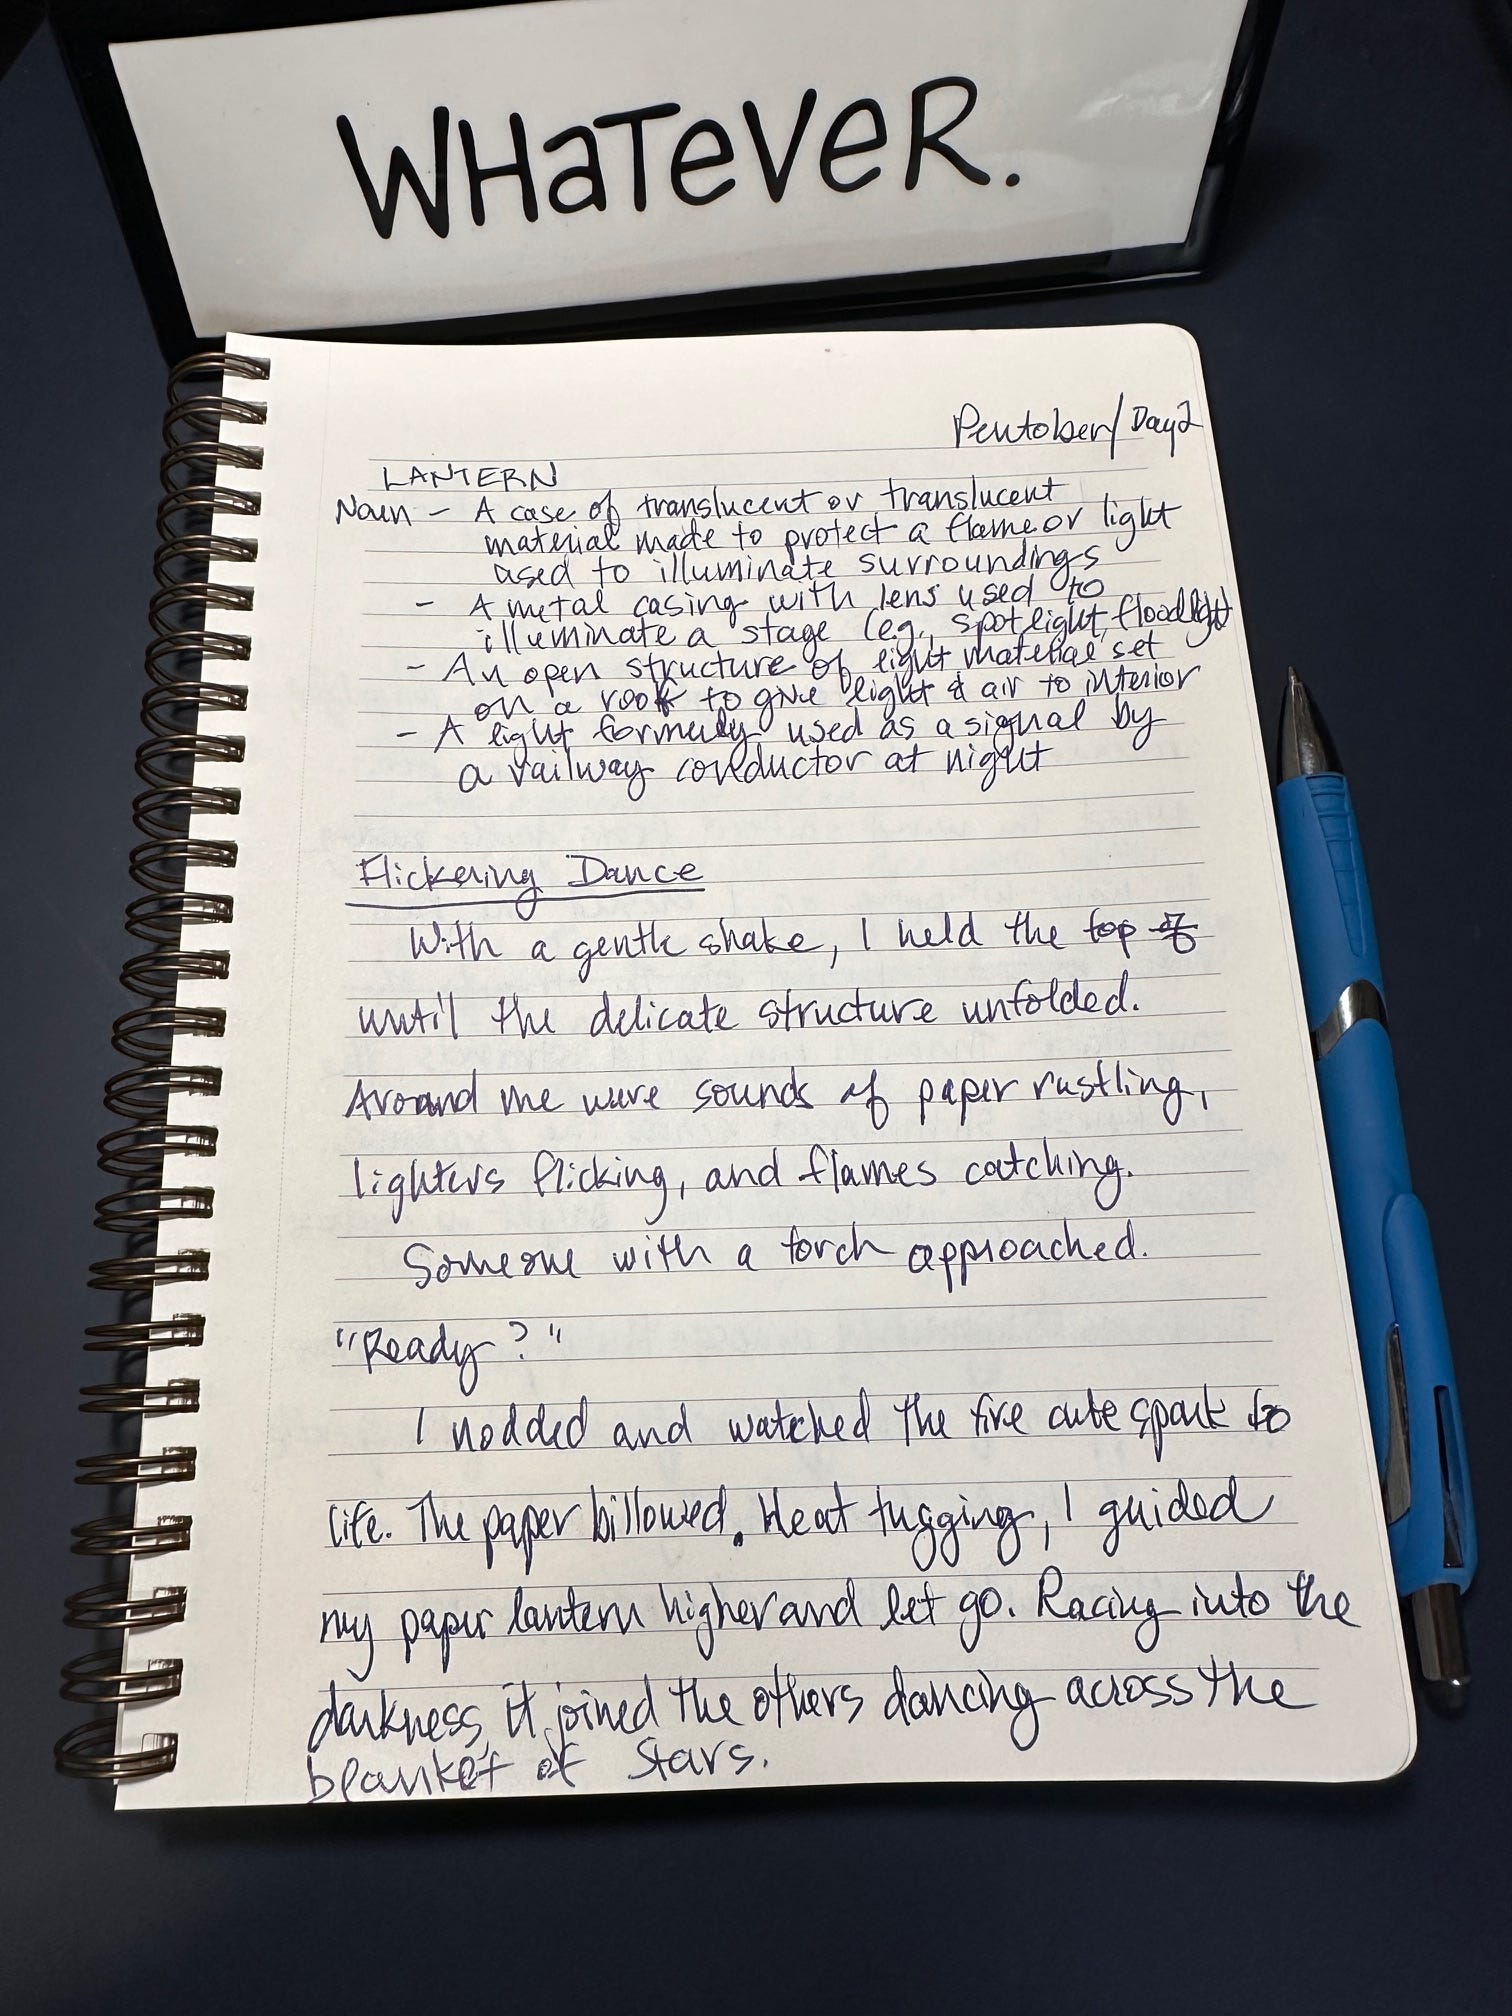 WHATEVER.
Pentober/Day2
LANTERN
Noun - A case of translucent or translucent
material made to protect a flame or light
used to illuminate surroundings
- A metal casing with lens used to
illuminate a stage (e.g., spotlight, floodlight
- An open structure of light material set
on a roof to give light & air to interior
- A light formerly used as a signal by
a railway conductor at night
Flickering Dance
With a gentle shake, I held the top of
until the delicate structure unfolded.
Around me were sounds of paper rustling,
lighters flicking, and flames catching.
Someone with a torch approached.
"Ready?"
I nodded and watched the fire cube spark to
life. The paper billowed. Heat tugging, I guided
my paper lantern higher and let go. Racing into the
darkness, it joined the others dancing across the
blanket of stars.